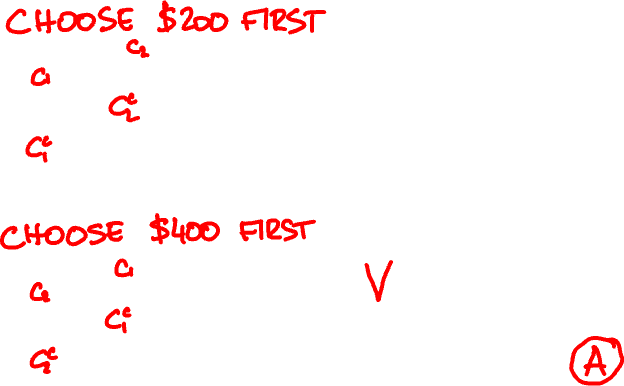 CHOOSE $200 FIRST
C₂
C₁
C₂ᶜ
C₁ᶜ
CHOOSE $400 FIRST
C₁
C₂ V
C₁ᶜ
C₂ᶜ A